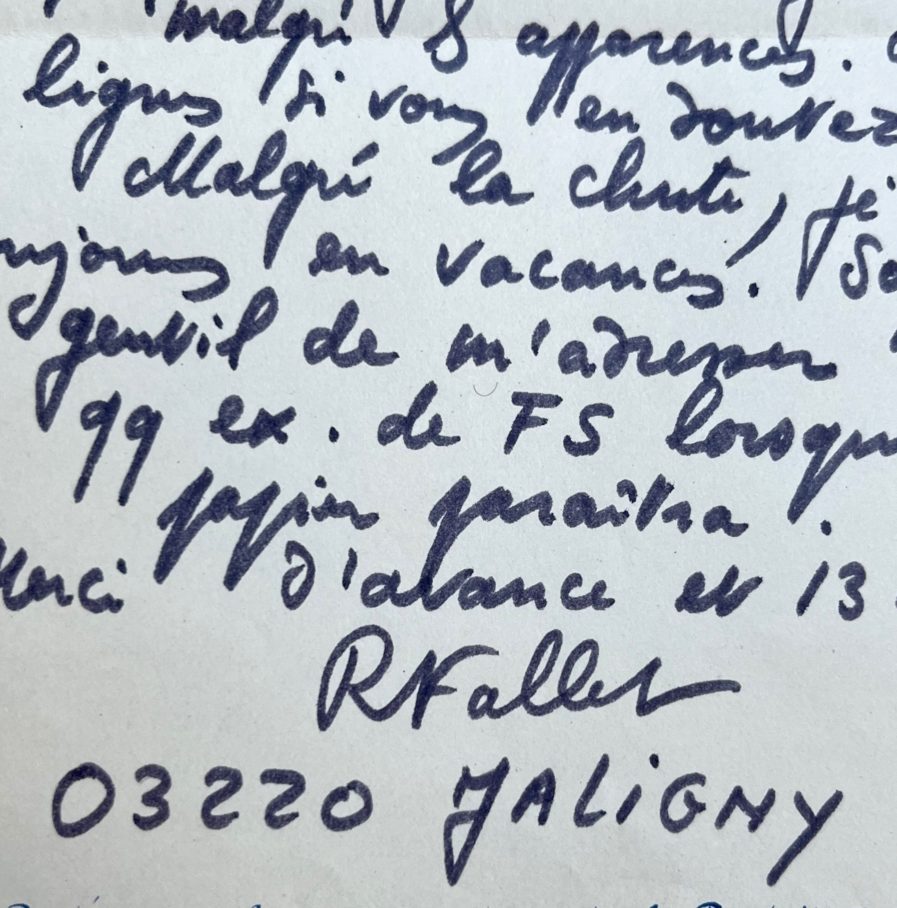 malgré 8 apparences.
lignes si vous en doutez
Malgré la chute, je
en vacances. So
gentil de m'adresser
qq ex. de FS lorsqu
papier paraîtra.
Merci d'avance et 13
R Fallet
03220 JALIGNY